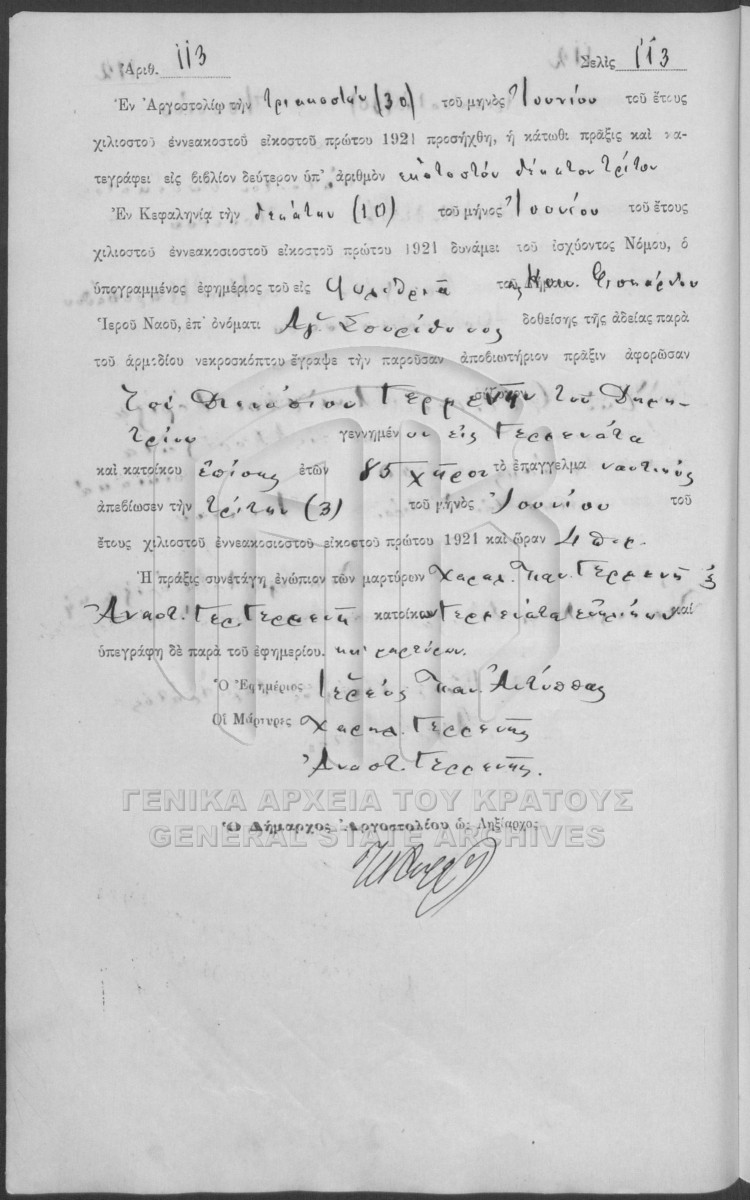 Ἀριθ. 113 Σελὶς 113
Ἐν Ἀργοστολίῳ τὴν τριακοστὴν (30) τοῦ μηνὸς Ἰουνίου τοῦ ἔτους
χιλιοστοῦ ἐννεακοστοῦ εἰκοστοῦ πρώτου 1921 προσήχθη, ἡ κάτωθι πρᾶξις καὶ κα-
τεγράφει εἰς βιβλίον δεύτερον ὑπ' ἀριθμὸν ἑκατοστόν δέκατον τρίτον
Ἐν Κεφαληνίᾳ τὴν δεκάτην (10) τοῦ μῆνος Ἰουνίου τοῦ ἔτους
χιλιοστοῦ ἐννεακοσιοστοῦ εἰκοστοῦ πρώτου 1921 δυνάμει τοῦ ἰσχύοντος Νόμου, ὁ
ὑπογραμμένος ἐφημέριος τοῦ εἰς Ψιλιθριᾶ Κοιν. Φισκάρδου
Ἱεροῦ Ναοῦ, ἐπ' ὀνόματι Ἁγ. Σπυρίδωνος δοθείσης τῆς ἀδείας παρὰ
τοῦ ἁρμοδίου νεκροσκόπτου ἔγραψε τὴν παροῦσαν ἀποβιωτήριον πρᾶξιν ἀφορῶσαν
Τὸν Διονύσιον Γερμενῆν τοῦ Δημη-
τρίου γεννημένον εἰς Γερμενάτα
καὶ κατοίκου ἐπίσης ἐτῶν 85 χῆρον τὸ ἐπάγγελμα ναυτικός
ἀπεβίωσεν τὴν τρίτην (3) τοῦ μηνὸς Ἰουνίου τοῦ
ἔτους χιλιοστοῦ ἐννεακοσιοστοῦ εἰκοστοῦ πρώτου 1921 καὶ ὥραν 4
Ἡ πρᾶξις συνετάγη ἐνώπιον τῶν μαρτύρων Χαραλ. Παν. Γερμενῆ &
Ἀναστ. Γερ. Γερμενῆ κατοίκων Γερμενάτα ἐνηλίκων καὶ
ὑπεγράφη δὲ παρὰ τοῦ ἐφημερίου. καὶ μαρτύρων.
Ὁ Ἐφημέριος Ἱερεύς Παν. Ἀντύππας
Οἱ Μάρτυρες Χαραλ. Γερμενῆς
Ἀναστ. Γερμενῆς.
ΓΕΝΙΚΑ ΑΡΧΕΙΑ ΤΟΥ ΚΡΑΤΟΥΣ
GENERAL STATE ARCHIVES
Ὁ Δήμαρχος Ἀργοστολίου ὡς Ληξίαρχος